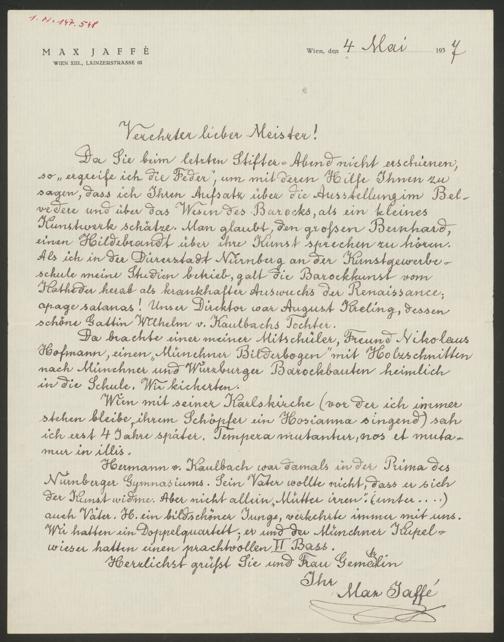 1.N.147.548
MAX JAFFÉ
WIEN XIII., LAINZERSTRASSE
Wien, den 4 Mai 1937
Verehrter lieber Meister!
Da Sie beim letzten Stifter-Abend nicht erschienen,
so „ergreife ich die Feder", um mit deren Hilfe Ihnen zu
sagen, dass ich Ihren Aufsatz über die Ausstellung im Bel-
vedere und über das Wesen des Barocks, als ein kleines
Kunstwerk schätze. Man glaubt, den grossen Bernhard,
einen Hildebrandt über ihre Kunst sprechen zu hören.
Als ich in der Dürerstadt Nürnberg an der Kunstgewerbe-
schule meine Studien betrieb, galt die Barockkunst vom
Katheder herab als krankhafter Auswuchs der Renaissance;
apage satanas! Unser Direktor war August Kreling, dessen
schöne Gattin Wilhelm v. Kaulbachs Tochter.
Da brachte einer meiner Mitschüler, Freund Nikolaus
Hofmann, einen „Münchner Bilderbogen" mit Holzschnitten
nach Münchner und Würzburger Barockbauten heimlich
in die Schule. Wir kicherten.
Wien mit seiner Karlskirche (vor der ich immer
stehen bleibe, ihrem Schöpfer ein Hosianna singend) sah
ich erst 4 Jahre später. Tempera mutantur, nos et muta-
mur in illis.
Hermann v. Kaulbach war damals in der Prima des
Nürnberger Gymnasiums. Sein Vater wollte nicht, dass er sich
der Kunst widme. Aber nicht allein „Mütter irren": (unter ....)
auch Väter. H. ein bildschöner Junge, verkehrte immer mit uns.
Wir hatten ein Doppelquartett; er und der Münchner Kupel-
wieser hatten einen prachtvollen II Bass.
Herzlichst grüßt Sie und Frau Gemahlin
Ihr
Max Jaffé